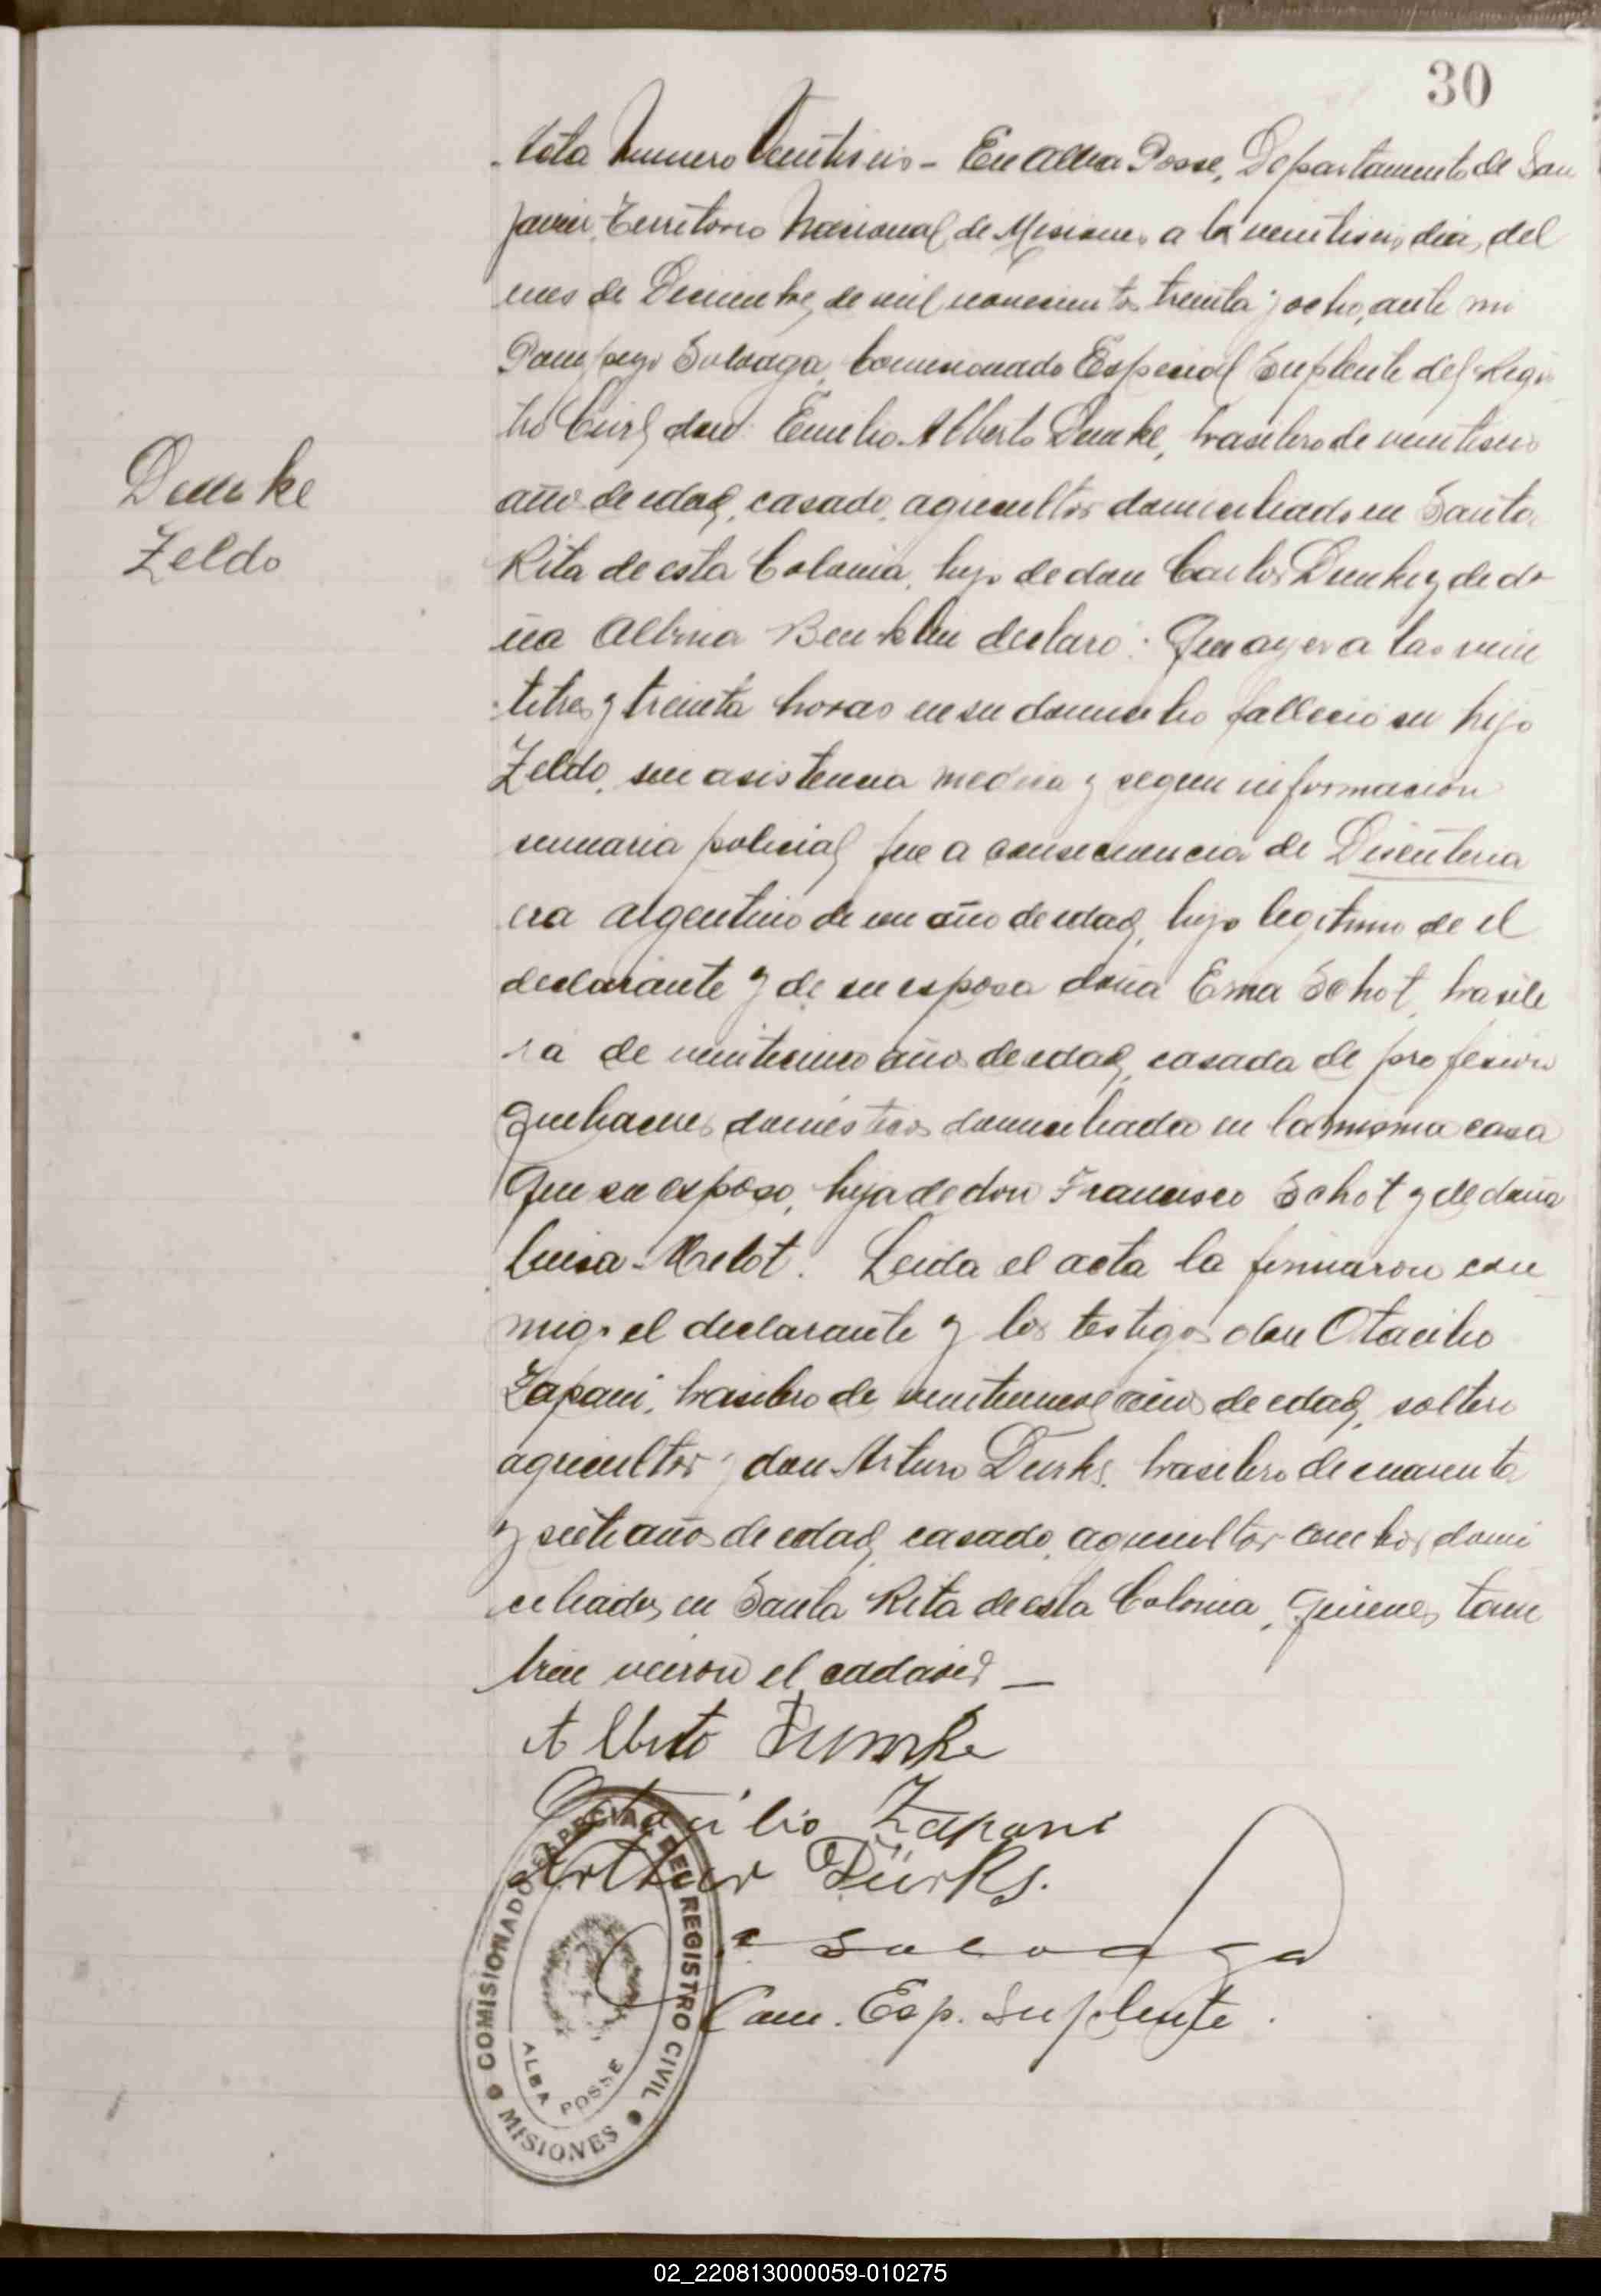 30
Acta Numero Veintiseis - En Alba Posse, Departamento de San
Javier, Territorio Nacional de Misiones a los veintiseis dias del
mes de Diciembre de mil novecientos treinta y ocho, ante mi
Pompeyo Soloaga, Comisionado Especial Suplente del Regis
tro Civil don: Emilio Alberto Dumke, brasilero de veintiseis
años de edad, casado, agricultor domiciliado en Santa
Demke
Zeldo
Rita de esta Colonia, hijo de don Carlos Dumke y de do
ña Albina declaró: Que ayer a las vein
titres y treinta horas en su domicilio fallecio su hijo
Zeldo, sin asistencia medica y segun informacion
sumaria policial fue a consecuencia de Disenteria
era argentino de un año de edad, hijo legitimo de el
declarante y de su esposa doña Erna Schot, brasile
ra de veinticinco años de edad, casada de profesion
quehaceres domésticos domiciliada en la misma casa
que su esposo, hija de don Francisco Schot y de doña
Luisa Melot. Leida el acta la firmaron con
migo el declarante y los testigos don Otacilio
Zapani, brasilero de veintinueve años de edad, soltero
agricultor y don Arturo Durks, brasilero de cuarenta
y siete años de edad, casado, agricultor ambos domi
ciliados en Santa Rita de esta Colonia, quienes tam
bien vieron el cadaver —
Alberto Dumke
Otacilio Zapani
Arthur Dürks.
P. Soloaga
Com. Esp. Suplente.
COMISIONADO ESPECIAL DEL REGISTRO CIVIL
ALBA POSSE
MISIONES
02_220813000059-010275